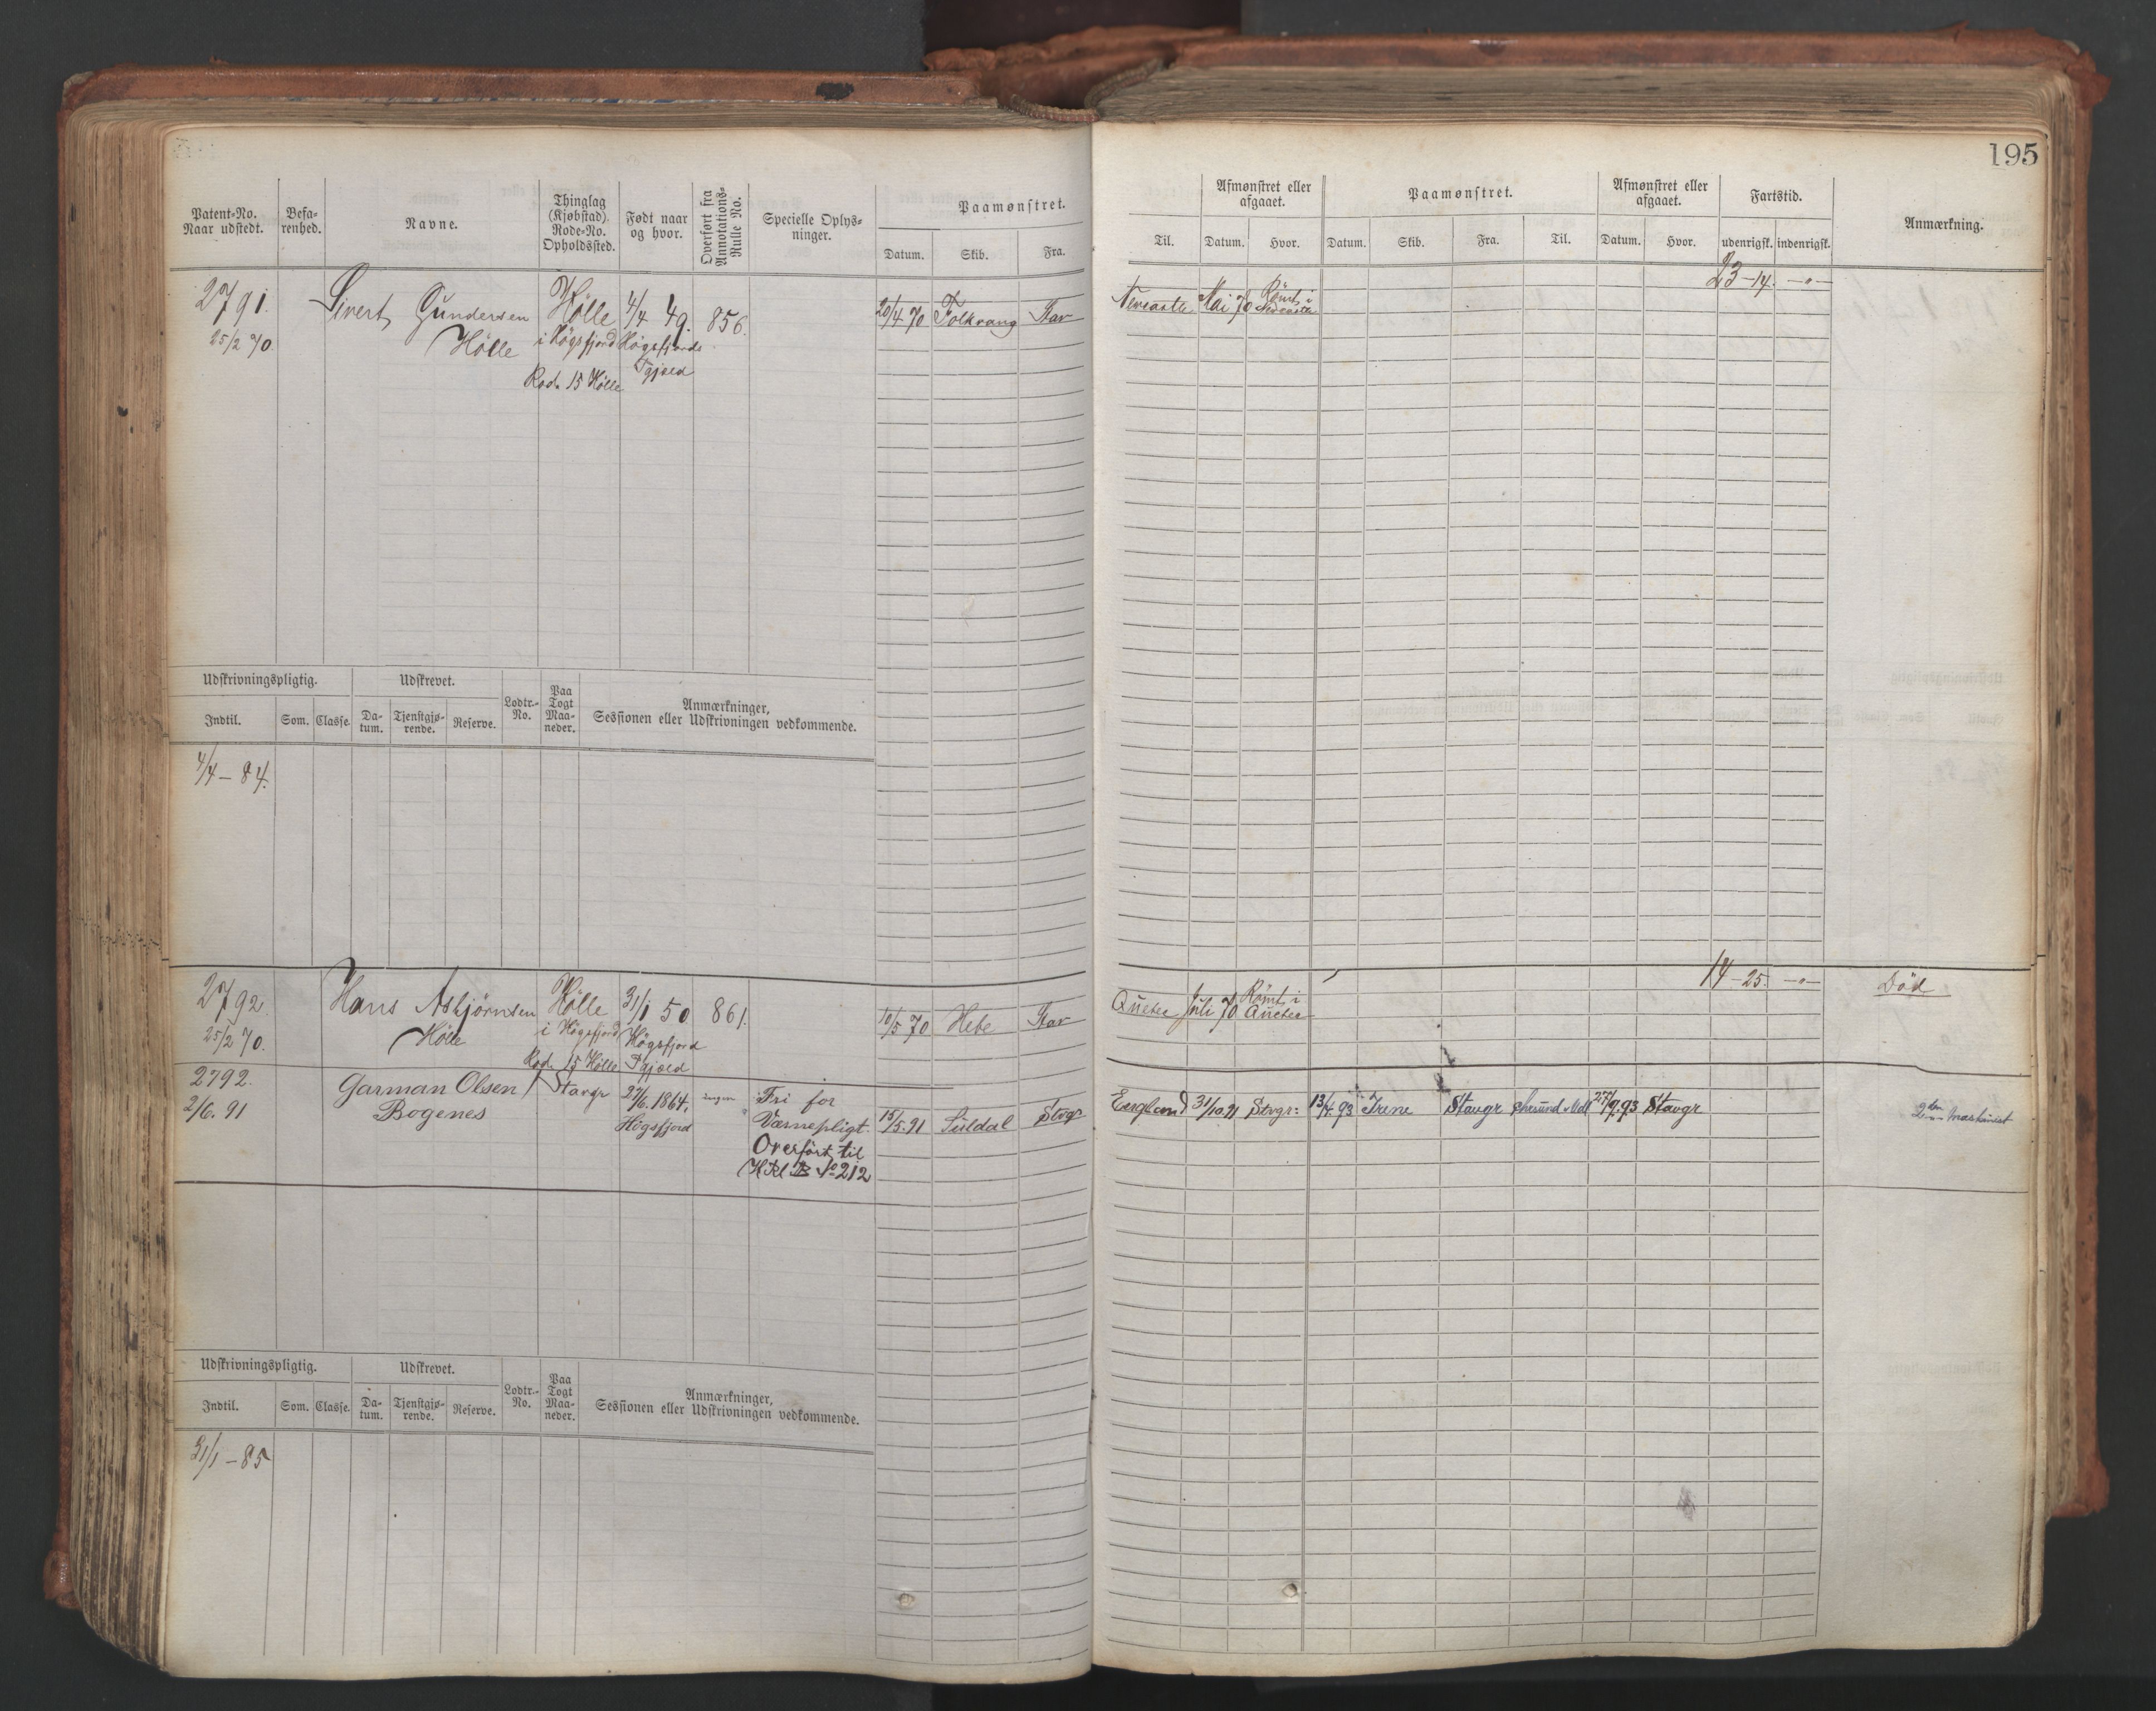 195
Patent-No. Naar udstedt.
Befarenhed.
Navne.
Thinglag (Kjøbstad). Rode-No. Opholdssted.
Født naar og hvor.
Overført fra Annotations-Rulle No.
Specielle Oplysninger.
Paamønstret.
Datum. Skib. Fra.
Til.
Afmønstret eller afgaaet.
Datum. Hvor.
Paamønstret.
Datum. Skib. Fra. Til.
Afmønstret eller afgaaet.
Datum. Hvor.
Fartstid.
udenrigsk. indenrigsk.
Anmærkning.
2791. Sivert Gundersen Hölle 4/4 49. 856. 20/4 70 Folkvang Stav Newcastle Mai 70 Römt i Newcastle 23-14. -"-
25/2 70. Hölle i Högsfjord Högsfjords
Rod. 15 Hölle Tgjæld
Udskrivningspligtig. Udskrevet.
Indtil. Som. Classe. Datum. Tjenstgjørende. Reserve. Lodtr.-No. Paa Togt Maaneder.
Anmærkninger, Sessionen eller Udskrivningen vedkommende.
4/4 - 84.
2792. Hans Asbjörnsen Hölle 31/1 50 861. 10/5 70 Hebe Stav Quebec Juli 70 Römt i Quebec 14-25. -"- Död
25/2 70. Hölle i Högsfjord Högsfjord
Rod. 15 Hölle Tgjæld
2792. Garman Olsen Stavgr 27/6. 1864. ingen Fri for
2/6. 91 Bogenes Högsfjord Værnepligt. 15/5.91 Suldal Stvgr England 31/10 91 Stvgr: 13/4 93 Irene Stavgr 27/9.93 Stavgr 2den Maskinist
Overfört til
H.Rl. B No 212
Udskrivningspligtig. Udskrevet.
Indtil. Som. Classe. Datum. Tjenstgjørende. Reserve. Lodtr.-No. Paa Togt Maaneder.
Anmærkninger, Sessionen eller Udskrivningen vedkommende.
31/1 - 85